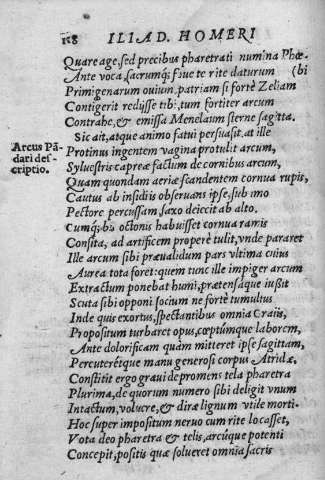 118 ILIAD. HOMERI
Quare age, sed precibus pharetrati numina Phœ-
Ante voca, sacrumq; siue te rite daturum (bi
Primigenarum ouium, patriam si fortè Zeliam
Contigerit redijsse tibi, tum fortiter arcum
Contrahe, & emissa Menelaum sterne sagitta.
Sic ait, atque animo fatui persuasit. at ille
Arcus Pā-
dari des-
criptio.
Protinus ingentem vagina protulit arcum,
Syluestris capreæ factum de cornibus arcum,
Quam quondam aeriæ scandentem cornua rupis,
Cautus ab insidiis obseruans ipse, sub imo
Pectore percussam, saxo deiecit ab alto.
Cumq; bis octonis habuisset cornua ramis
Consita, ad artificem properè tulit, vnde pararet
Ille arcum sibi præualidum pars vltima cuius
Aurea tota foret: quem tunc ille impiger arcum
Extractum ponebat humi, prætensáque iußit
Scuta sibi opponi socium ne fortè tumultus
Inde quis exortus, spectantibus omnia Graiis,
Propositum turbaret opus, cœptúmque laborem,
Ante dolorificam quàm mitteret ipse sagittam,
Percuterétque manu generosi corpus Atridæ.
Constitit ergo graui depromens tela pharetra
Plurima, de quorum numero sibi deligit vnum
Intactum, volucre, & diræ lignum vtile morti.
Hoc super impositum neruo cum rite locasset,
Vota deo pharetra & telis, arcúque potenti
Concepit, positis quæ solueret omnia sacris